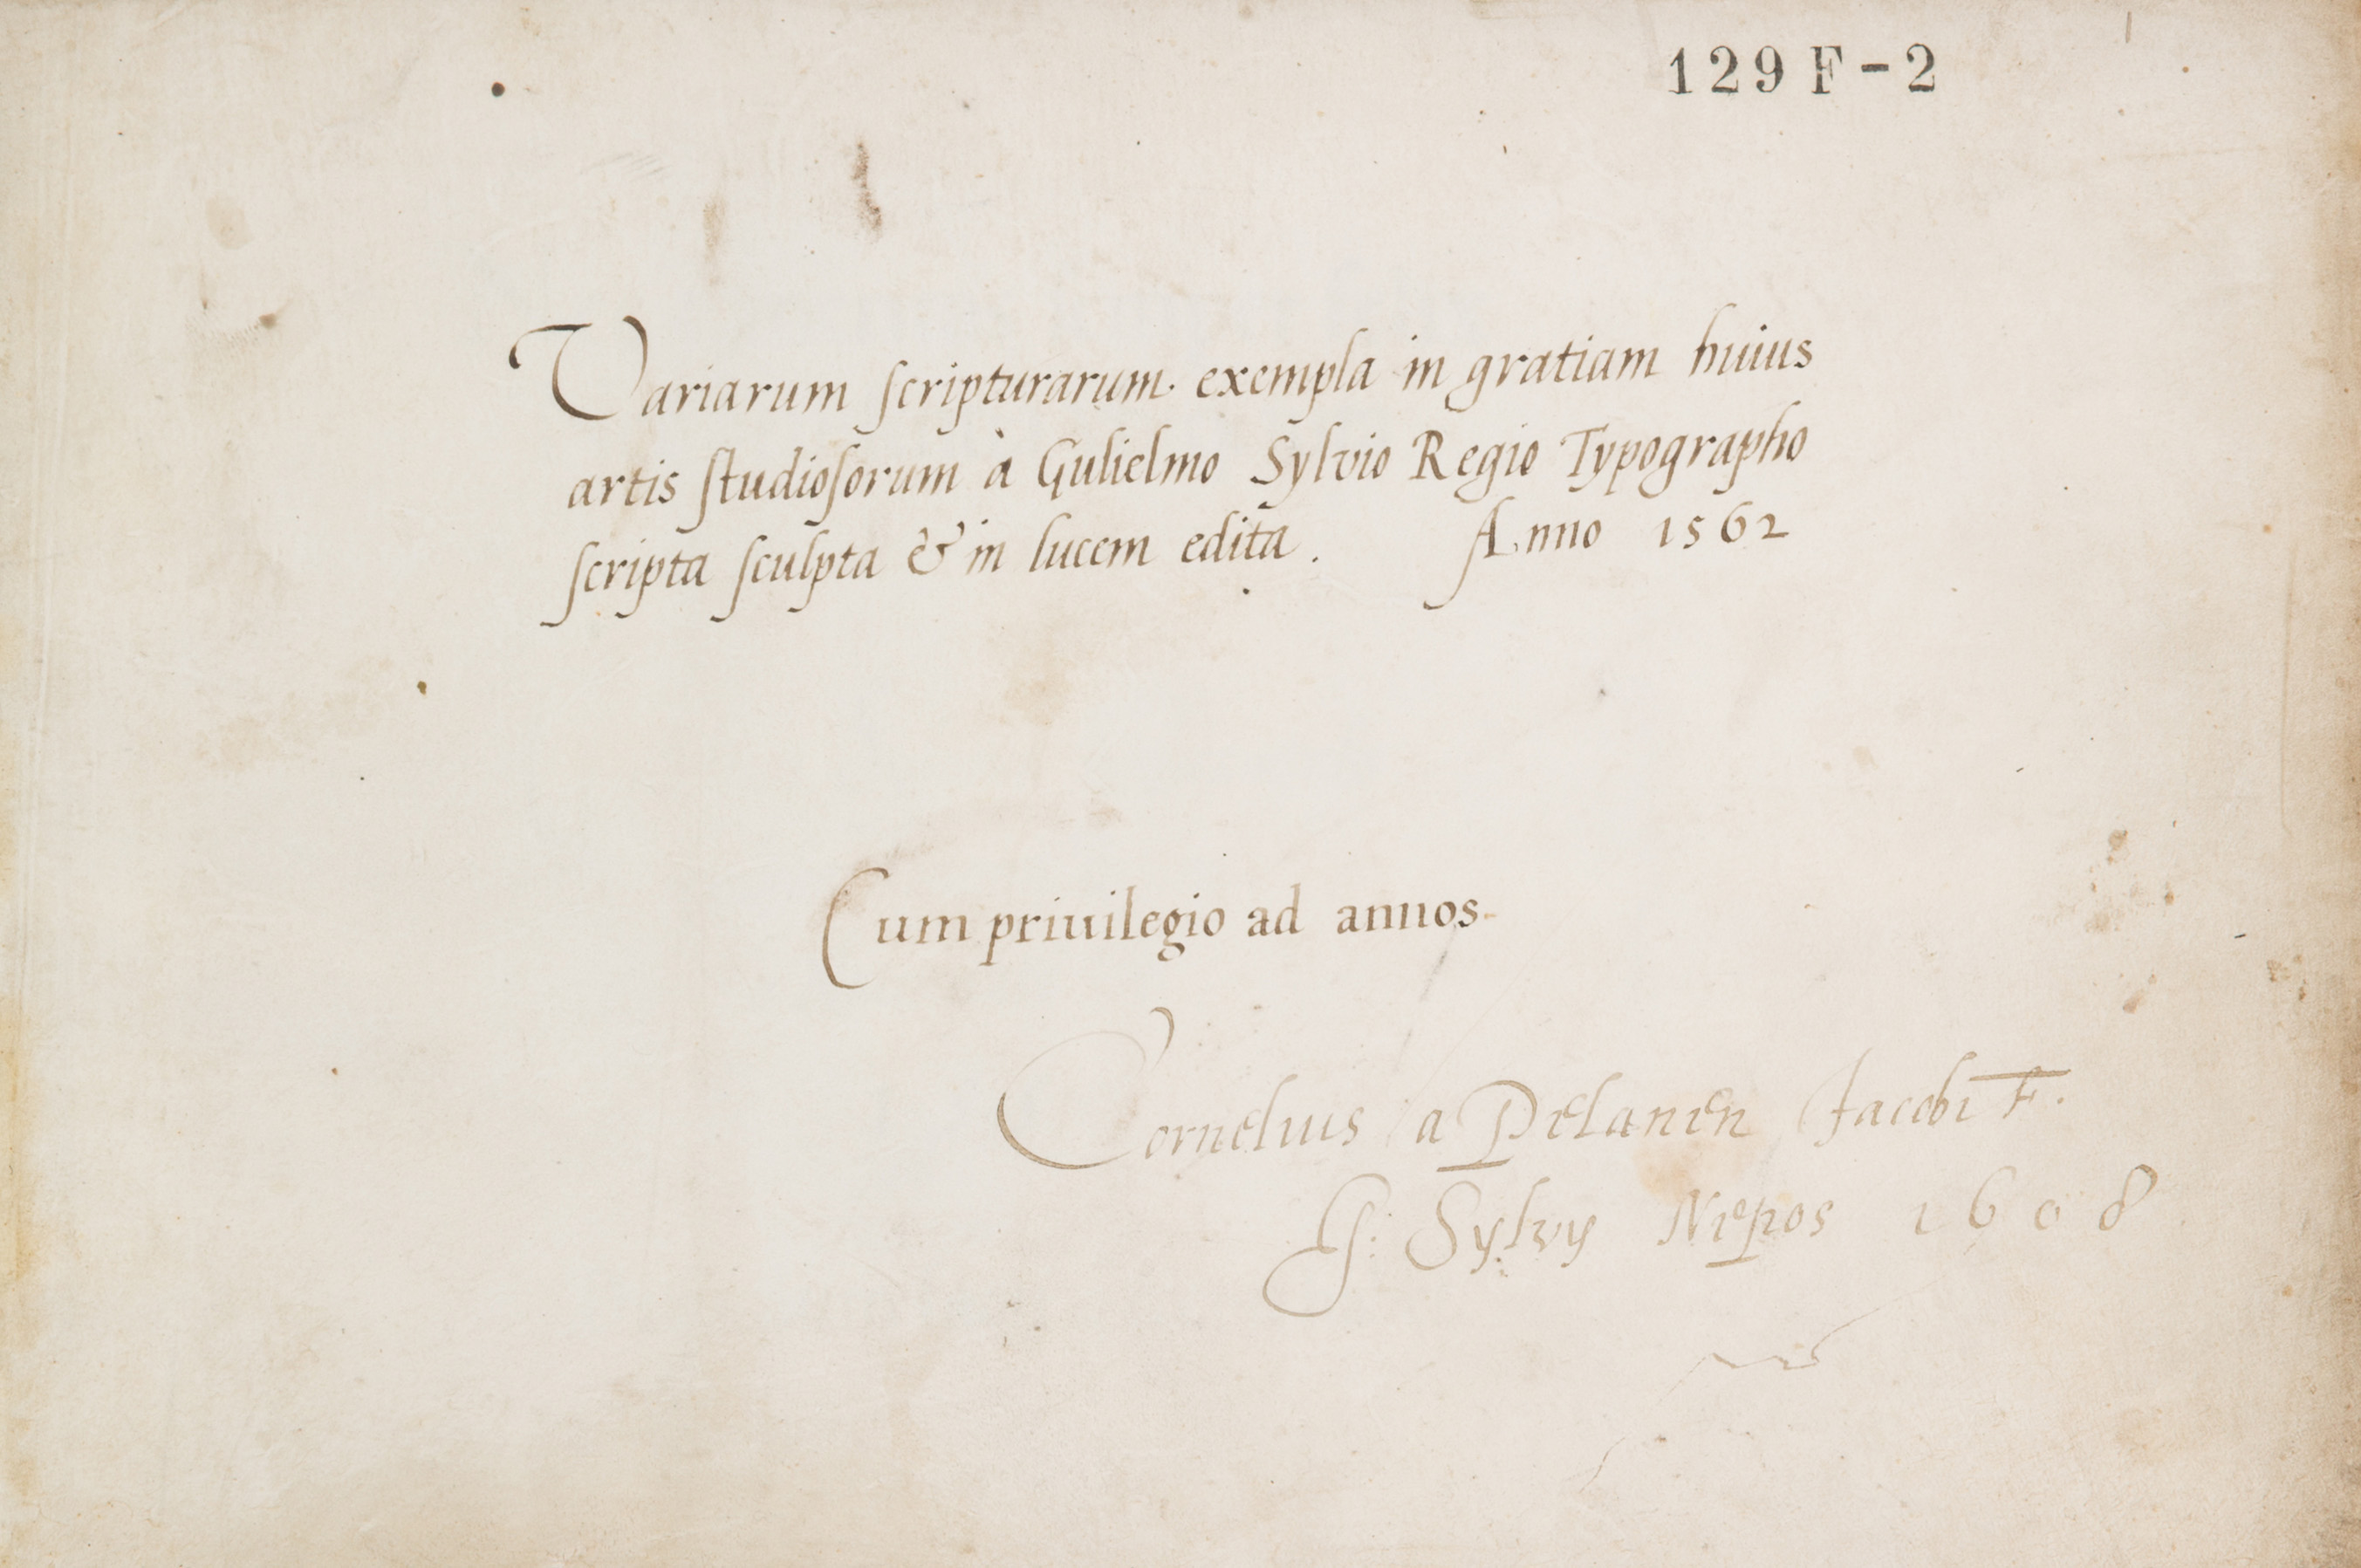 129 F-2
Variarum ſcripturarum. exempla in gratiam huius
artis ſtudioſorum à Gulielmo Sylvio Regio Typographo
ſcripta ſculpta & in lucem edita. Anno 1562
Cum priuilegio ad annos.
Cornelius a Pelanen Jacobi F.
G: Sylvÿ Nepos 1608